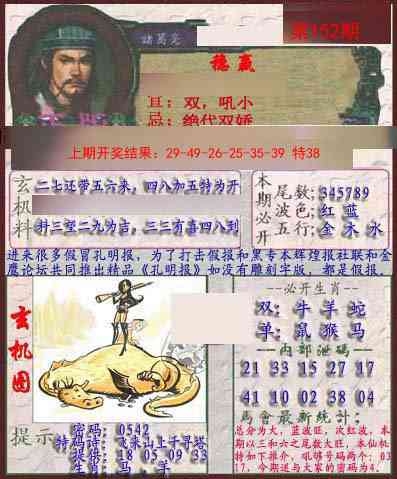 第152期
諸葛亮
稳赢
宜：双，吼小
忌：绝代双娇
上期开奖结果：29-49-26-25-35-39 特38
玄机料
二七还带五六来，四八加五特为开
料三望二九为吉，三三有喜四八到
本期必开
尾数:345789
波色:红 蓝
五行:金 木 水
进来很多假冒孔明报，为了打击假报和黑专本辉煌报社联和金
鹰论坛共同推出精品《孔明报》如没有雕刻字版，都是假报。
玄机图
提示
密码：0542
特码诗：飞来山上千寻塔
提供：18 05 09 33
生肖：马，羊
--必开生肖--
双：牛 羊 蛇
单：鼠 猴 马
--内部泄码--
21 33 15 27 17
41 10 02 38 04
馬會最新統計：
总分为大，蓝波旺，次红波，本
期以三和六之尾数大旺，本仙机
特如下推介，吼够号码两个：03
17，今期送与大家的密码为4。